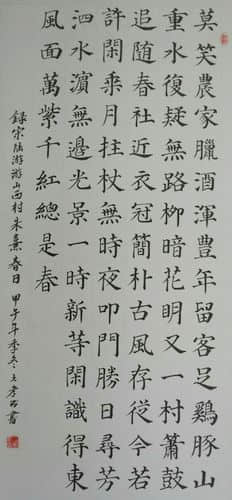 莫笑農家臘酒渾豐年留客足鷄豚山
重水復疑無路柳暗花明又一村簫鼓
追随春社近衣冠簡朴古風存從今若
許閑乘月拄杖無時夜叩門勝日尋芳
泗水濵無邊光景一時新等閑識得東
風面萬紫千紅總是春
録宋陆游游山西村朱熹春日 甲午年季冬 書